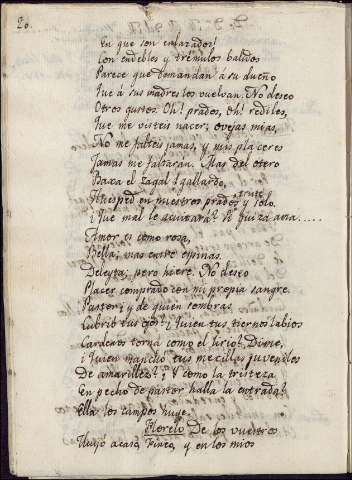 20.
En que son enlazados!
Con endebles y trémulos balidos
Parece que demandan á su dueño
Que á sus madres los vuelvan. No deseo
Otros gustos. Oh! prados, oh! rediles,
Que me visteis nacer; ovejas mias,
No me falteis jamas, y mis placeres
Jamas me faltaran. Mas del otero
Baxa el zagal gallardo,
Huesped en nuestros prados, triste y solo.
¿Que mal le aquexará? Si quiza ama.....
Amor es como rosa,
Bella; mas entre espinas.
Deleyta; pero hiere. No deseo
Placer comprado con mi propia sangre.
Pastor; y de quien sombras
Cubrir tus ojos? ¿Quien tus tiernos labios
Cardenos torna como el lirio? Dime,
¿Quien manchó tus mexillas juveniles
De amarillez? ¿Y como la tristeza
En pecho de pastor halla la entrada?
Ella los campos huye.
Florelo De los vuestros
Huyó acaso, Finea, y en los mios